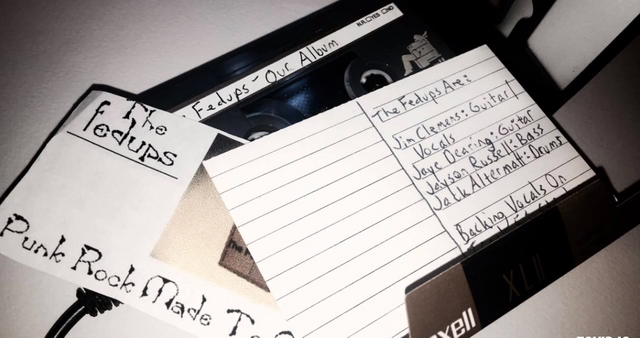 Fedups - Our Album
The
fedups
Punk Rock Made
The Fedups Are:
Jim Clemens: Guitar/
Vocals
Jaye Dearing: Guitar
Jayson Russell: Bass
Jack Altermatt: Drums
Backing Vocals On
XLII
maxell